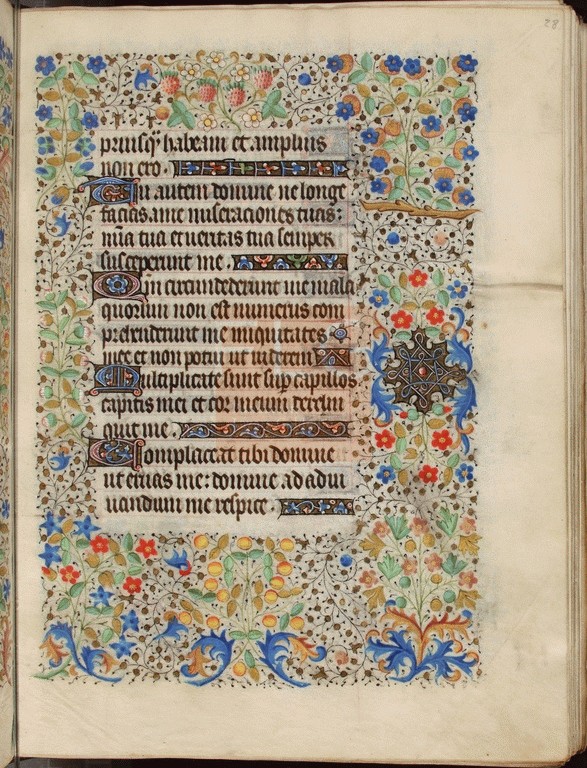 28
priusq̄ habeam et amplius
non ero.
Tu autem domine ne longe
facias a me miseraciones tuas:
mīa tua et ueritas tua semper
susceperunt me.
Qm̄ circumdederunt me mala
quorum non est numerus com
prehenderunt me iniquitates
mee et non potui ut uiderem
Multiplicate sunt sup̄ capillos
capitis mei et cor meum dereli
quit me
Complaceat tibi domine
ut eruas me: domine ad adiu
uandum me respice.